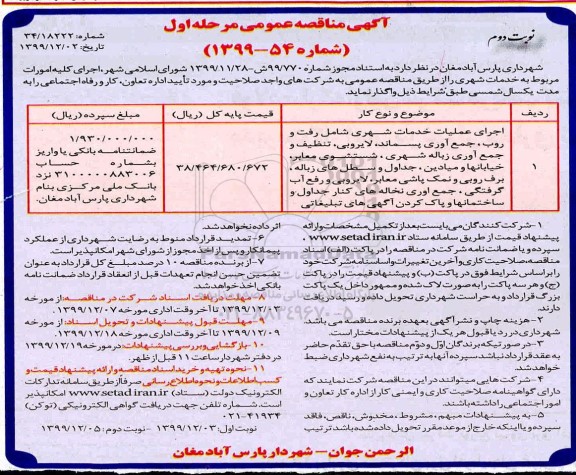 آگهی مناقصه عمومی مرحله اول
(شماره ۵۴-۱۳۹۹)
نوبت دوم
شماره: ۳۴/۱۸۲۲۲
تاریخ: ۱۳۹۹/۱۲/۰۲
شهرداری پارس آبادمغان در نظر دارد به استناد مجوز شماره ۹۹/۷۷۰ش-۱۳۹۹/۱۱/۲۸ شورای اسلامی شهر، اجرای کلیه امورات
مربوط به خدمات شهری را از طریق مناقصه عمومی به شرکت های واجد صلاحیت و مورد تأیید اداره تعاون، کار و رفاه اجتماعی را به
مدت یکسال شمسی طبق شرایط ذیل واگذار نماید.
ردیف
موضوع و نوع کار
قیمت پایه کل (ریال)
مبلغ سپرده (ریال)
۱
اجرای عملیات خدمات شهری شامل رفت و
روب، جمع آوری پسماند، لایروبی، تنظیف و
جمع آوری زباله شهری، شستشوی معابر،
خیابانها و میادین، جداول و سطل های زباله،
برف روبی و نمک پاشی معابر، لایروبی و رفع آب
گرفتگی، جمع آوری نخاله های کنار جداول و
ساختمانها و پاک کردن آگهی های تبلیغاتی
۳۸/۴۶۴/۶۸۰/۶۷۲
۱/۹۳۰/۰۰۰/۰۰۰
ضمانتنامه بانکی یا واریز
بشماره حساب
۳۱۰۰۰۰۰۸۸۳۰۰۶ نزد
بانک ملی مرکزی بنام
شهرداری پارس آبادمغان.
۱-شرکت کنندگان می بایست بعد از تکمیل مشخصات و ارائه
پیشنهاد قیمت از طریق سامانه ستاد www.setadiran.ir،
سپرده و یا ضمانت نامه شرکت در مناقصه را در پاکت (الف) اسناد
مناقصه، صلاحیت کاری و آخرین تغییرات و اساسنامه کار خود
را بر اساس شرایط فوق در پاکت (ب) و پیشنهاد قیمت را در پاکت
(ج) و هر سه پاکت را به صورت لاک شده و ممهور داخل یک پاکت
بزرگ قرار داد و به حراست شهرداری تحویل داده و رسید دریافت
دارند.
۲-هزینه چاپ و نشر آگهی بعهده برنده مناقصه می باشد.
شهرداری در رد یا قبول هر یک از پیشنهادات مختار است.
۳-در صورتیکه برندگان اول و دوم مناقصه با حق تقدم حاضر
به عقد قرارداد نباشد سپرده آنها به ترتیب به نفع شهرداری ضبط
خواهد شد.
۴-شرکت هایی میتوانند در این مناقصه شرکت نمایند که
دارای گواهینامه صلاحیت کاری و ایمنی کار از اداره کار تعاون و
امور اجتماعی را داشته باشند.
۵-به پیشنهادات مبهم، مشروط، مخدوش، ناقص، فاقد
سپرده و یا اینکه خارج از موعد مقرر تحویل داده شده باشد، ترتیب
اثر داده نخواهد شد.
۶-تمدید قرارداد منوط به رضایت شهرداری از عملکرد
پیمانکار و پس از اخذ مجوز از شورای شهر امکانپذیر است.
۷-از برنده مناقصه ۱۰ درصد مبلغ کل قرارداد به عنوان
تضمین حسن انجام تعهدات قبل از انعقاد قرارداد ضمانت نامه
بانکی اخذ خواهد شد.
۸-مهلت دریافت اسناد شرکت در مناقصه: از مورخه
۱۳۹۹/۱۲/۰۲ تا آخر وقت اداری مورخه ۱۳۹۹/۱۲/۰۷
۹-مهلت قبول پیشنهادات و تحویل اسناد: از مورخه
۱۳۹۹/۱۲/۰۹ تا آخر وقت اداری مورخه ۱۳۹۹/۱۲/۱۸
۱۰-بازگشایی و بررسی پیشنهادات: در مورخه ۱۳۹۹/۱۲/۱۹
در دفتر شهردار ساعت ۱۱ قبل از ظهر.
۱۱-نحوه تهیه و خرید اسناد مناقصه و ارائه پیشنهاد قیمت و
کسب اطلاعات و نحوه اطلاع رسانی صرفا از طریق سامانه تدارکات
الکترونیک دولت (ستاد) www.setadiran.ir امکانپذیر
است. شماره تلفن جهت دریافت گواهی الکترونیکی (توکن)
۰۲۱-۴۱۹۳۴
نوبت اول: ۱۳۹۹/۱۲/۰۳ - نوبت دوم: ۱۳۹۹/۱۲/۰۵
الرحمن جوان - شهردار پارس آبادمغان